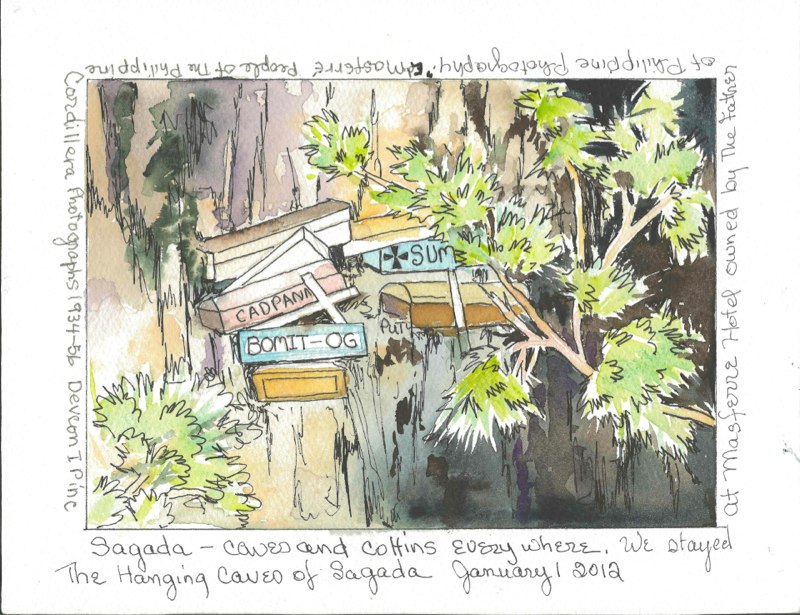 Sagada – caves and coffins everywhere. We stayed
at Masferre Hotel owned by The Father
of Philippine Photography. Masferre People of The Philippine
Cordillera Photographs 1934-56 Devcon I P Inc
SUM
CADPANA
BOMIT-OG
The Hanging Caves of Sagada January 1 2012